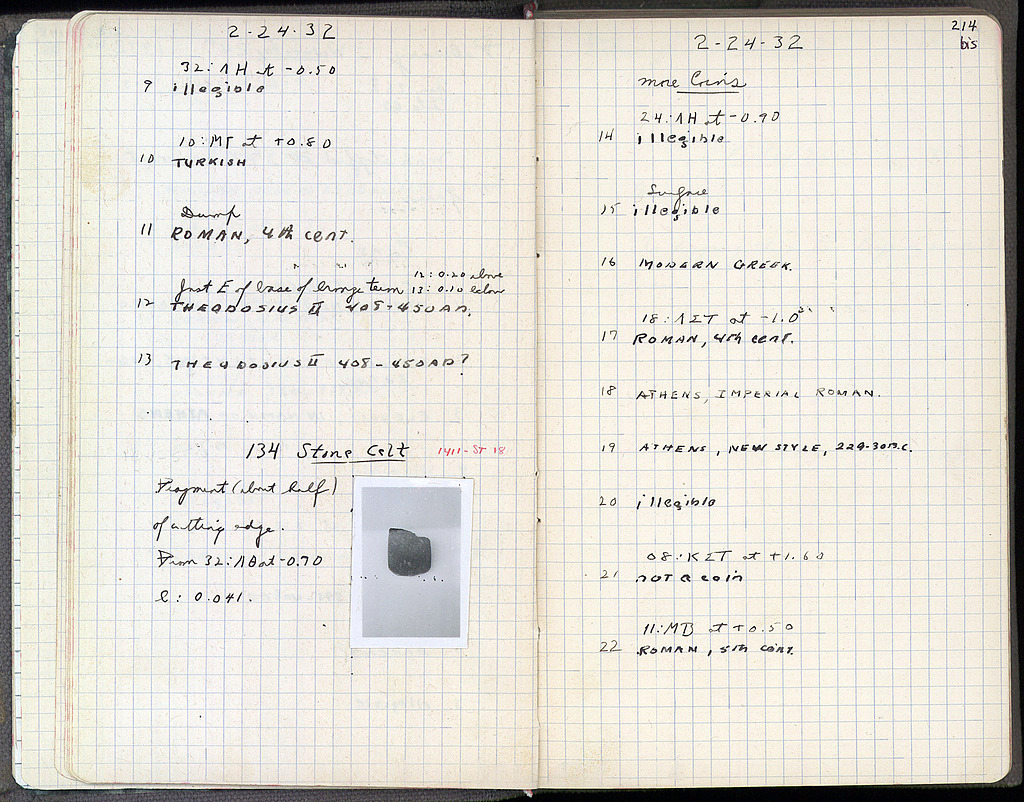 2-24-32
32:ΛH at -0.50
9 illegible
10:MΓ at +0.80
10 TURKISH
Dump
11 ROMAN, 4th cent.
12: 0.20 above
Just E of base of bronze team 13: 0.10 below
12 THEODOSIUS II 408-450AD.
13 THEODOSIUS II 408-450AD?
134 Stone Celt 1411-ST 18
Fragment (about half)
of cutting edge.
From 32:ΛΘ at -0.70
l: 0.041.
214
bis
2-24-32
more Coins
24:ΛH at -0.90
14 illegible
Surface
15 illegible
16 MODERN GREEK.
18:ΛΣT at -1.0
17 ROMAN, 4th cent.
18 ATHENS, IMPERIAL ROMAN.
19 ATHENS, NEW STYLE, 229-30B.C.
20 illegible
08:KΣT at +1.60
21 not a coin
11:MB at +0.50
22 ROMAN, 5th cent.